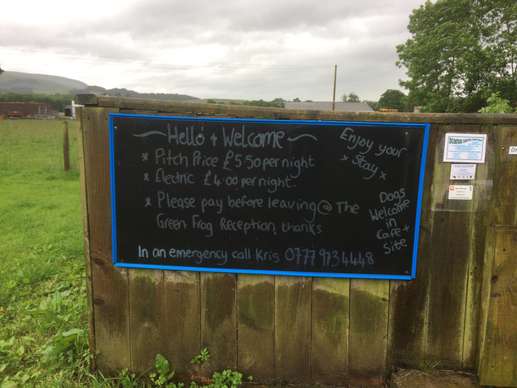 Hello + Welcome
* Pitch Price £5.50 per night
* Electric £4.00 per night.
* Please pay before leaving @ The
Green Frog Reception, thanks
In an emergency call Kris 0777 9734448
Enjoy your
* Stay *
Dogs
Welcome
in
Cafe +
Site